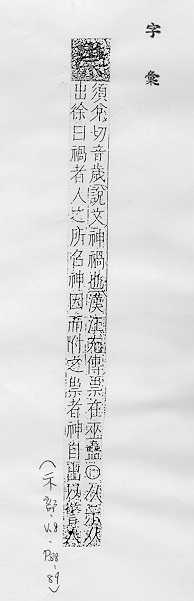 字彙
須兊切音歲說文神禍也漢江充傳祟在巫蠱〇从示从
出徐曰禍者人之所召神因而附之祟者神自出以警人
(禾部. V.8. P.88-89)